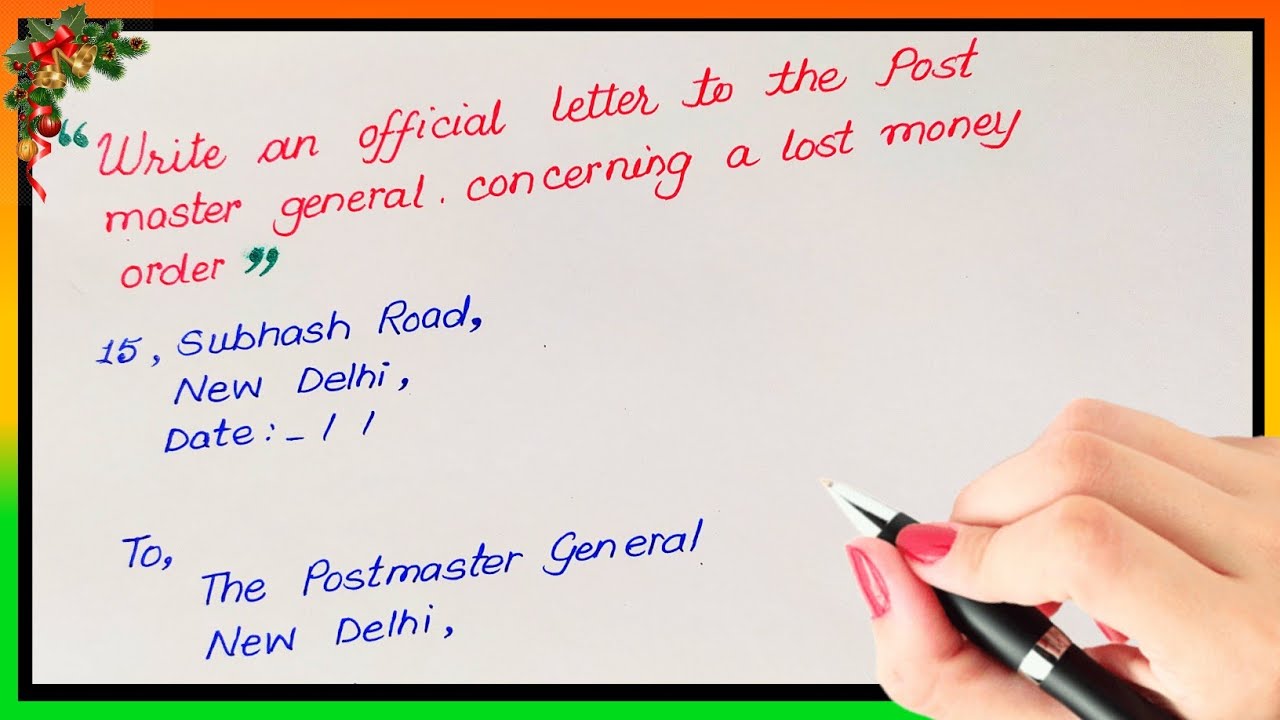 “Write an official letter to the Post
master general. concerning a lost money
order”
15, Subhash Road,
New Delhi,
Date:- / /
To,
The Postmaster General
New Delhi,